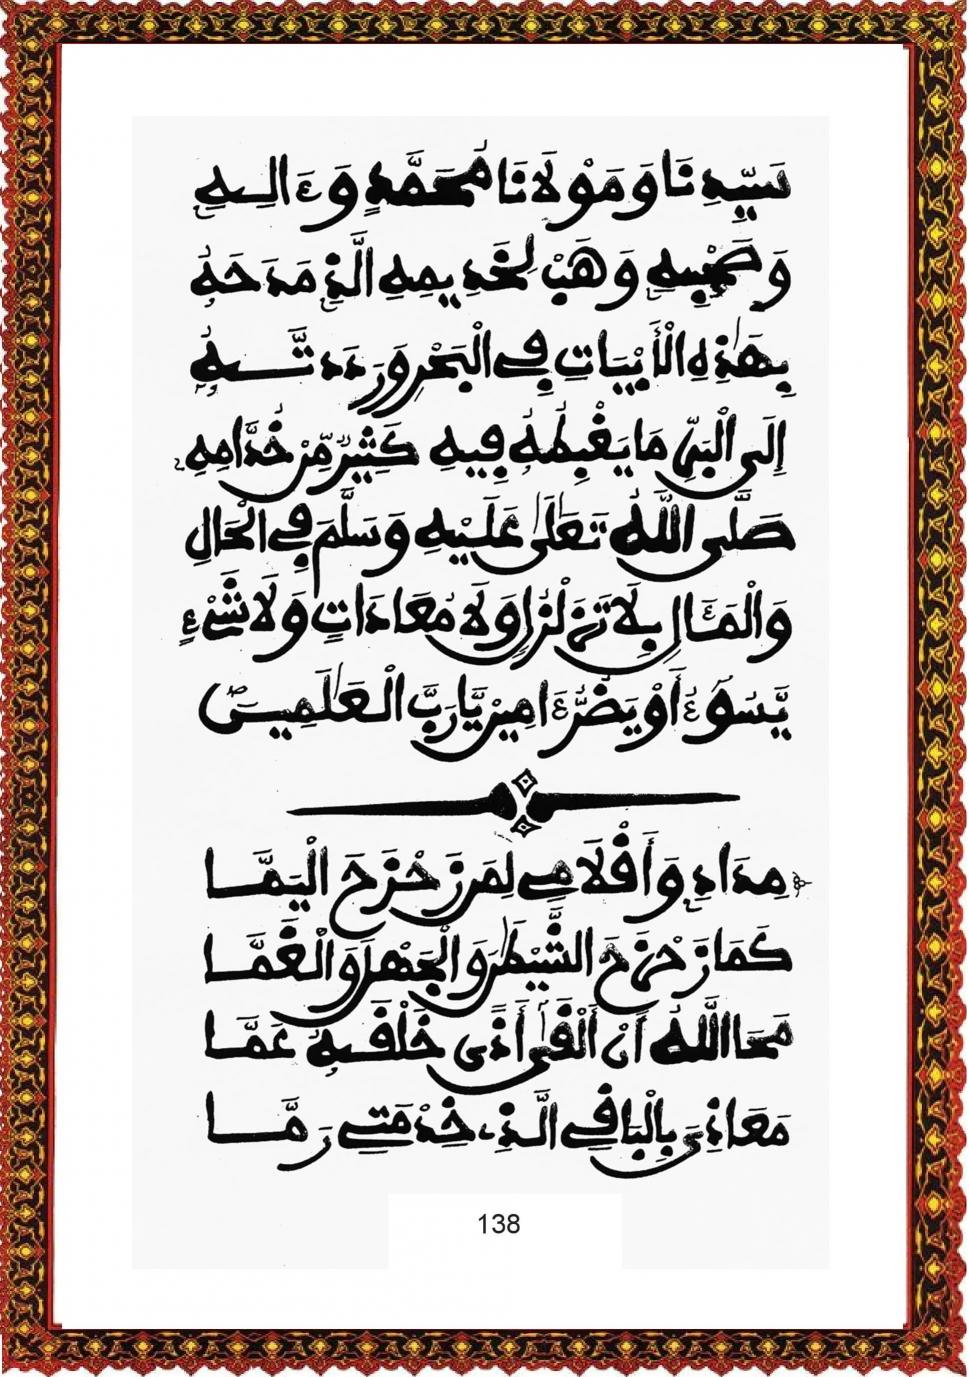 سَيِّدِنَا وَمَوْلَانَا مُحَمَّدٍ وَءَالِهِ
وَصَحْبِهِ وَهَبْ لِخَدِيمِهِ الَّذِے مَدَحَهُ
بِهَٰذِهِ الْأَبْيَاتِ فِے الْبَحْرِ وَرَدَدتَّهُ
إِلَى الْبَرِّ مَا يَغْبِطُهُ فِيهِ كَثِيرٌ مِّنْ خُدَّامِهِ
صَلَّى اللَّهُ تَعَٰلَى عَلَيْهِ وَسَلَّمَ فِے الْحَالِ
وَالْمَـَٔالِ بِلَا تَزَلْزُلٍ وَلَا مُعَادَاتٍ وَلَا شَےْءٍ
يَّسُوءُ أَوْ يَضُرُّ ءَامِين يَا رَبَّ الْعَٰلَمِينَ
مِدَادِے وَأَقْلَامِے لِمَن زَحْزَحَ الْيَمَّا
كَمَا زَحْزَحَ الشَّيْطَٰنَ وَالْجَهْلَ وَالْغَمَّا
مَحَا اللَّهُ أَنْ أَلْقَىٰ أَذَى خَلْقِهِ عَمَّا
مَعَاذِىَ بِالْبَاقِے الَّذِے خِدْمَتِے رَمَّا
138